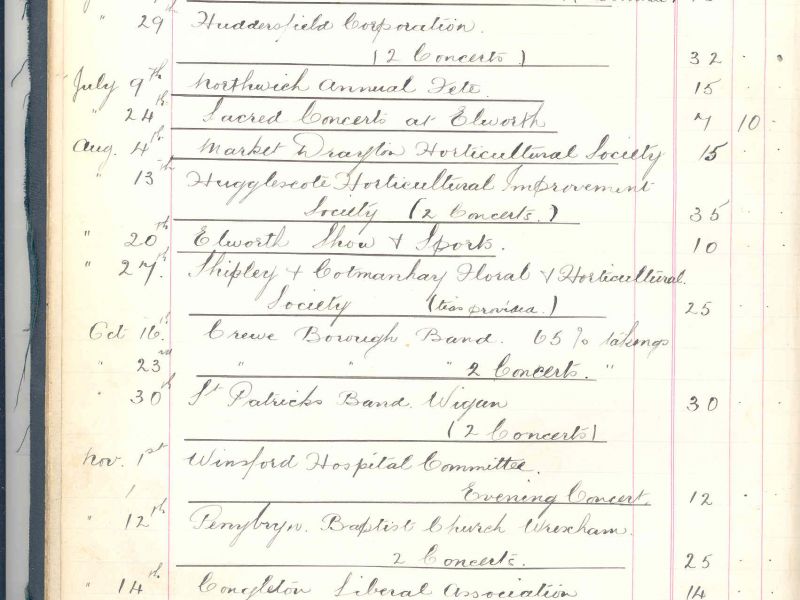 " 29th Huddersfield Corporation.
(2 Concerts) 32 . .
July 9th Northwich Annual Fete. 15
" 24th Sacred Concerts at Elworth 7 10 .
Aug. 4th Market Drayton Horticultural Society 15 . .
" 13th Hugglescote Horticultural Improvement
Society (2 Concerts.) 35 . .
" 20th Elworth Show & Sports. 10 . .
" 27th Shipley & Cotmanhay Floral & Horticultural.
Society (teas provided.) 25 . .
Oct 16th Crewe Borough Band. 65% takings
" 23rd " " " 2 Concerts. "
" 30th St Patricks Band. Wigan 30 . .
(2 Concerts)
Nov. 1st Winsford Hospital Committee.
Evening Concert. 12 . .
" 12th Penybryn. Baptist Church Wrexham.
2 Concerts. 25 . .
" 14th Congleton Liberal Association 14 . .